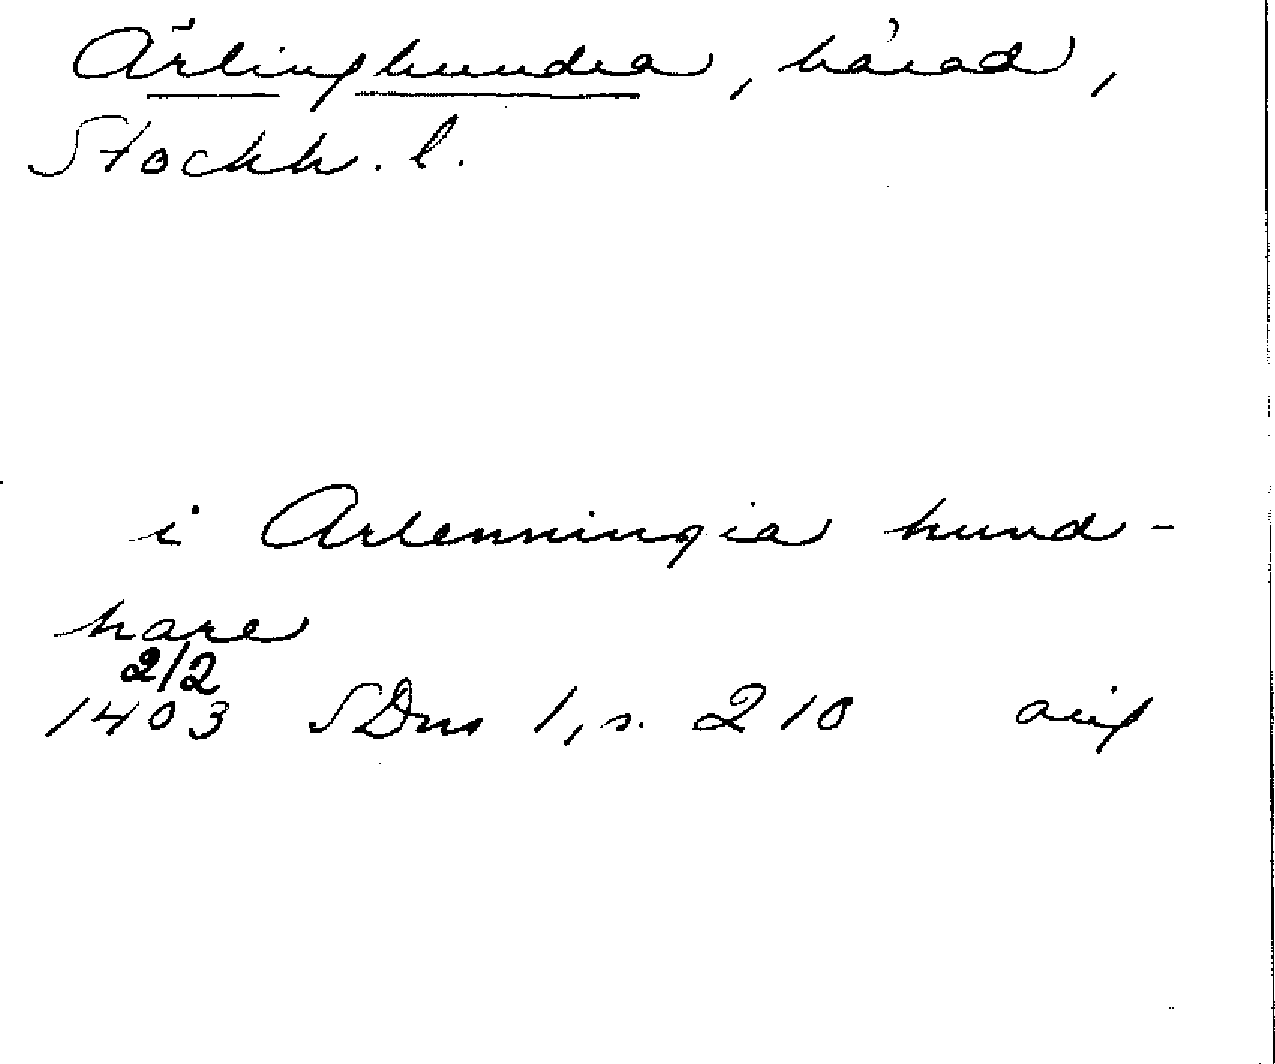 Ärlinghundra, härad,
Stockh. l.
i Arlenningia hund-
hare
2/2
1403 SDns 1, s. 210